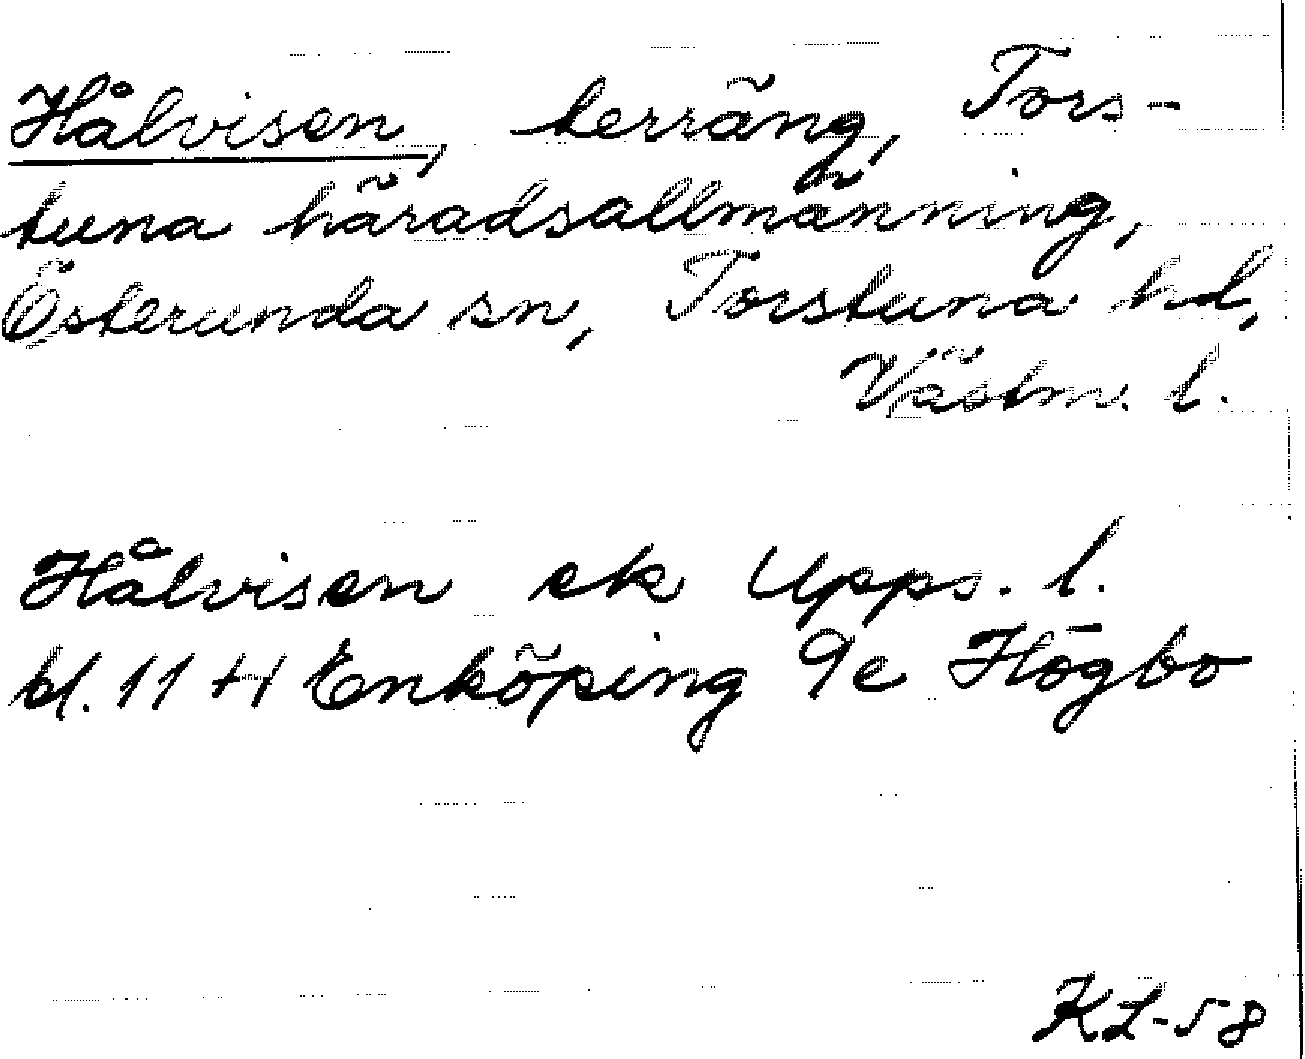 Hålvisen, terräng, Tors-
tuna häradsallmänning,
Österunda sn, Torstuna hd,
Västm. l.
Hålvisen ek Upps. l.
bl. 11 H Enköping 9e Högbo
KL-58